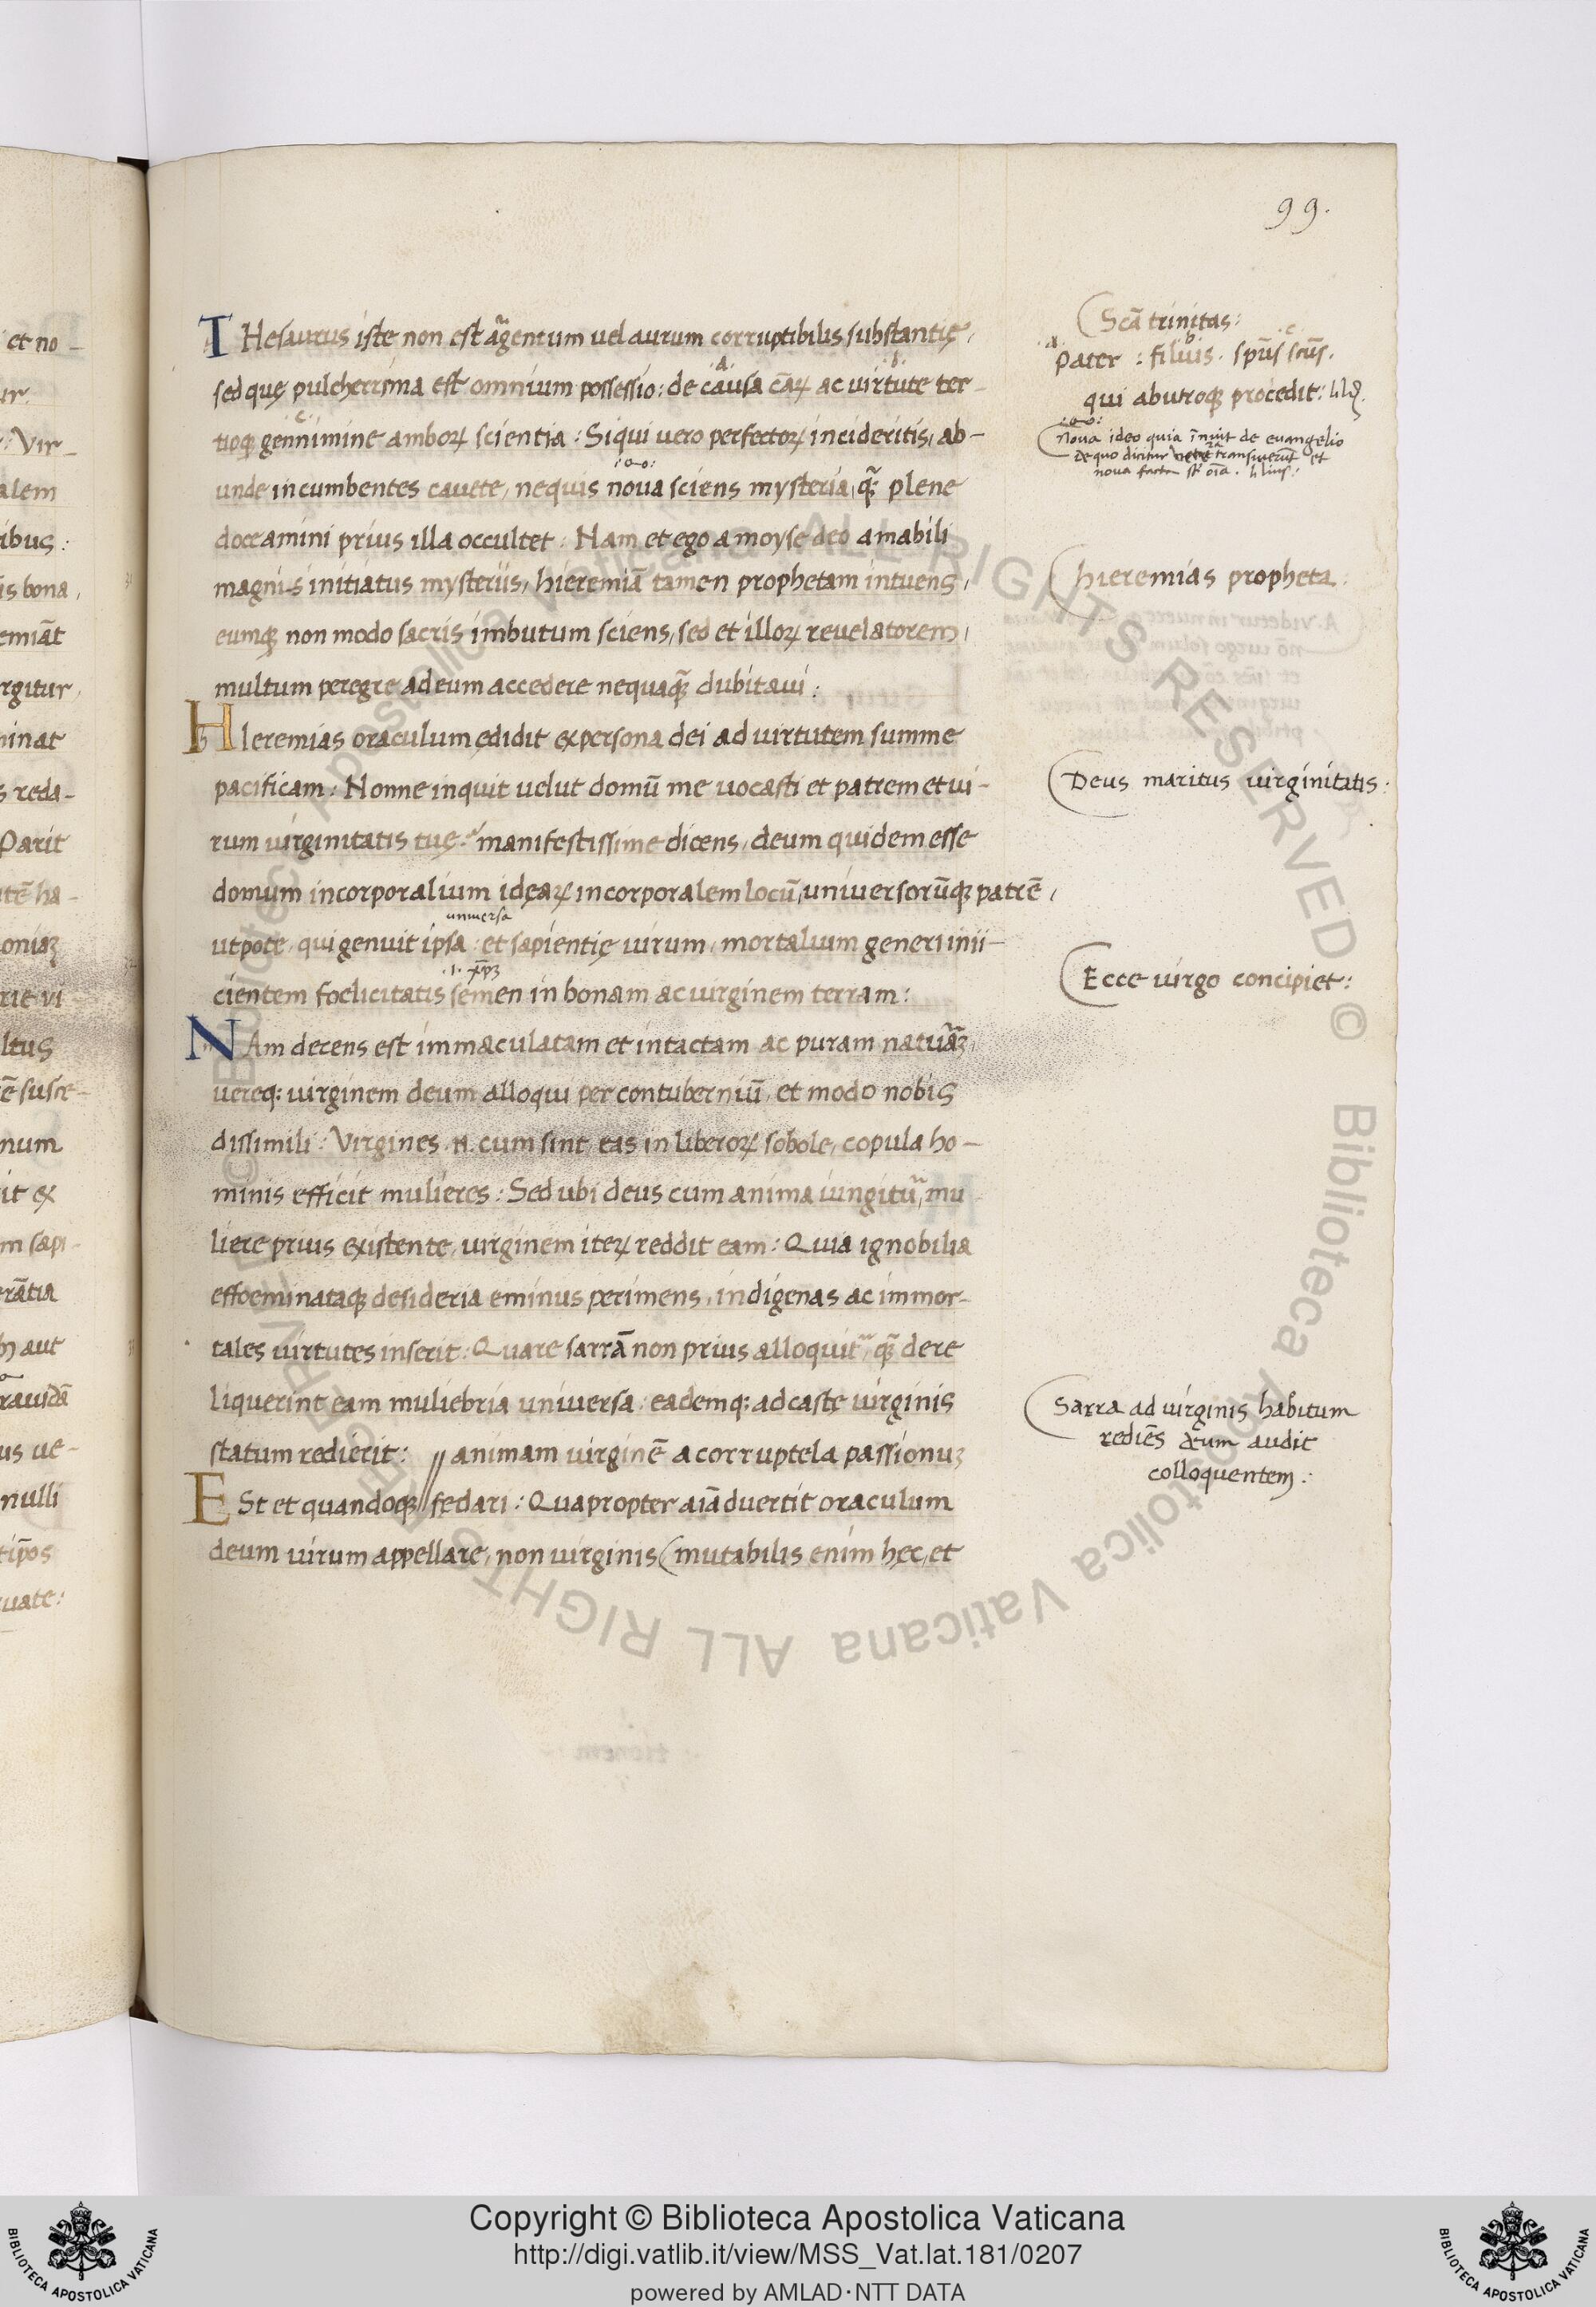 99.
THesaurus iste non est argentum uel aurum corruptibilis substantię,
sed quę pulcherrima est omnium possessio: de causa caꝝ ac virtute ter-
tioqꝫ gennimine amboꝝ scientia: Siqui vero perfectoꝝ incideritis, ab-
unde incumbentes cavete, nequis nova sciens mysteria, q̃ꝫ plene
doceamini prius illa occultet: Nam et ego a moyse deo amabili
magnis initiatus mysteriis, hieremiã tamen prophetam intuens,
eumqꝫ non modo sacris imbutum sciens, sed et illoꝝ revelatorem,
multum peregre ad eum accedere nequaq̃ꝫ dubitavi:
HIeremias oraculum ędidit ex persona dei ad virtutem summe
pacificam: Nonne inquit uelut domũ me vocasti et patrem et vi-
rum virginitatis tuę? manifestissime dicens, deum quidem esse
domum incorporalium ideaꝝ incorporalem locũ, universorũqꝫ patrẽ,
universa
utpote qui genuit ipsa: et sapientię virum, mortalium generi inii-
.i. xp̃ꝫ
cientem foelicitatis semen in bonam ac virginem terram:
NAm decens est immaculatam et intactam ac puram naturaꝫ
uereq: virginem deum alloqui per contuberniũ, et modo nobis
dissimili: Virgines .n. cum sint, eas in liberoꝝ sobole, copula ho-
minis efficit mulieres: Sed ubi deus cum anima iungitur, mu
liere prius existente, virginem iteꝝ reddit eam: Quia ignobilia
effoeminataqꝫ desideria eminus perimens, indigenas ac immor-
tales virtutes inserit: Quare sarrã non prius alloquit̃, q̃ꝫ dere
liquerint eam muliebria universa. eademq: ad castę virginis
statum redierit: // animam virginẽ a corruptela passionuꝫ
ESt et quandoqꝫ // fędari: Quapropter aiãdvertit oraculum
deum virum appellare, non virginis (mutabilis enim hęc, et
Scã trinitas:
pater: filius. spũs scũs.
qui ab utroqꝫ procedit:
nova ideo quia ĩnuit de evangelio
de quo dicitur vetera transierũt et
nova facta st̃ oĩa.
hieremias propheta:
Deus maritus virginitatis:
Ecce virgo concipiet:
Sarra ad virginis habitum
rediẽs deum audit
colloquentem:
Copyright © Biblioteca Apostolica Vaticana
http://digi.vatlib.it/view/MSS_Vat.lat.181/0207
powered by AMLAD·NTT DATA